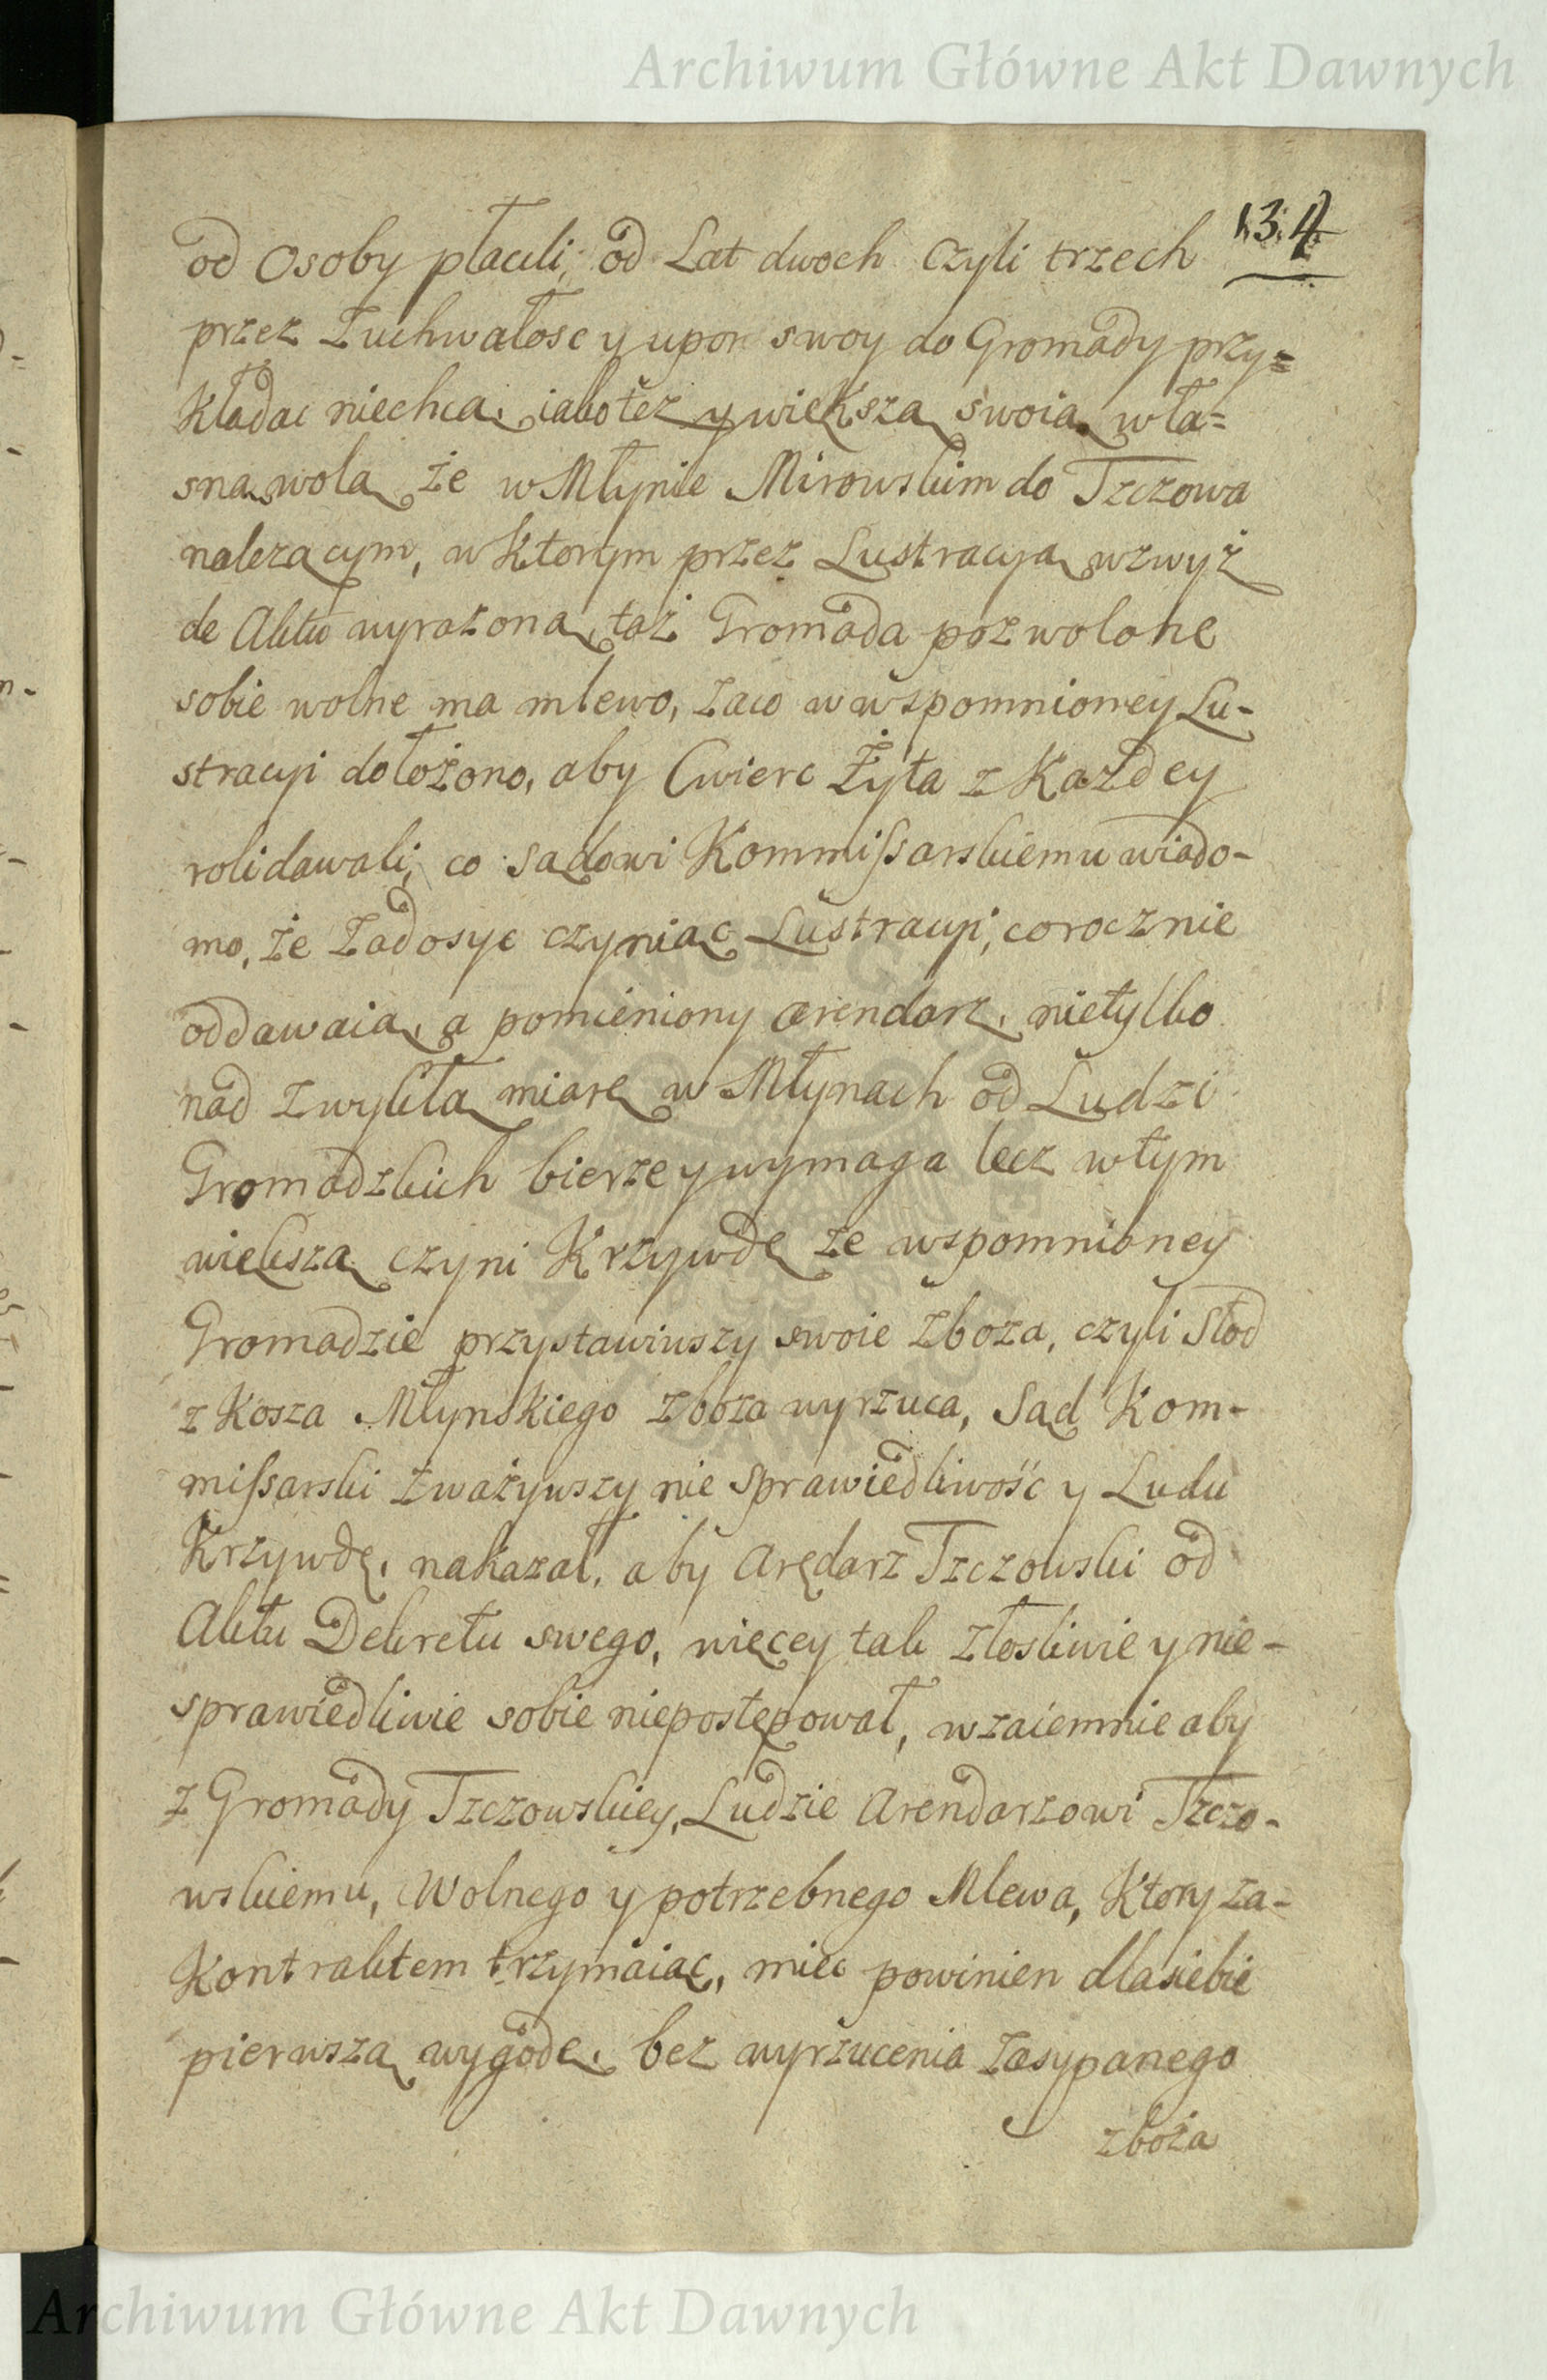 Archiwum Główne Akt Dawnych
134
od Osoby płacili, od Lat dwoch czyli trzech
przez Zuchwałosc y upor swoy do Gromady przy=
kładac niechcą, iako też y większą swoią wła=
sną wolą że w Młynie Mirowskim do Tzczowa
należącym, w ktorym przez Lustracyą wzwyż
de Aktu wyrażoną, taż Gromada pozwolone
sobie wolne ma mlewo, zaco w wspomnioney Lu-
stracyi dołożono, aby Cwierc Żyta z Każdey
roli dawali, co Sądowi Kommissarskiemu wiado-
mo, że Zadosyc czyniąc Lustracyi, corocznie
oddawaią, a pomieniony arendarz, nietylko
nad Zwykłą miarę w Młynach od Ludzi
Gromadzkich bierze y wymaga lecz w tym
większą czyni Krzywdę że wspomnioney
Gromadzie przystawiwszy swoie Zboza, czyli Słod
z Kosza Młynskiego Zboża wyrzuca, Sąd Kom-
missarski Zważywszy nie Sprawiedliwość y Ludu
Krzywdę, nakazał, aby Arędarz Tzczowski od
Aktu Dekretu swego, więcey tak Złosliwie y nie-
sprawiedliwie sobie niepostępował, wzaiemnie aby
z Gromady Tzczowskiey, Ludzie Arendarzowi Tzczo-
wskiemu, Wolnego y potrzebnego Mlewa, Ktory za-
Kontraktem trzymaiąc, miec powinien dla siebie
pierwszą wygodę, bez wyrzucenia Zasypanego
zboża
Archiwum Główne Akt Dawnych